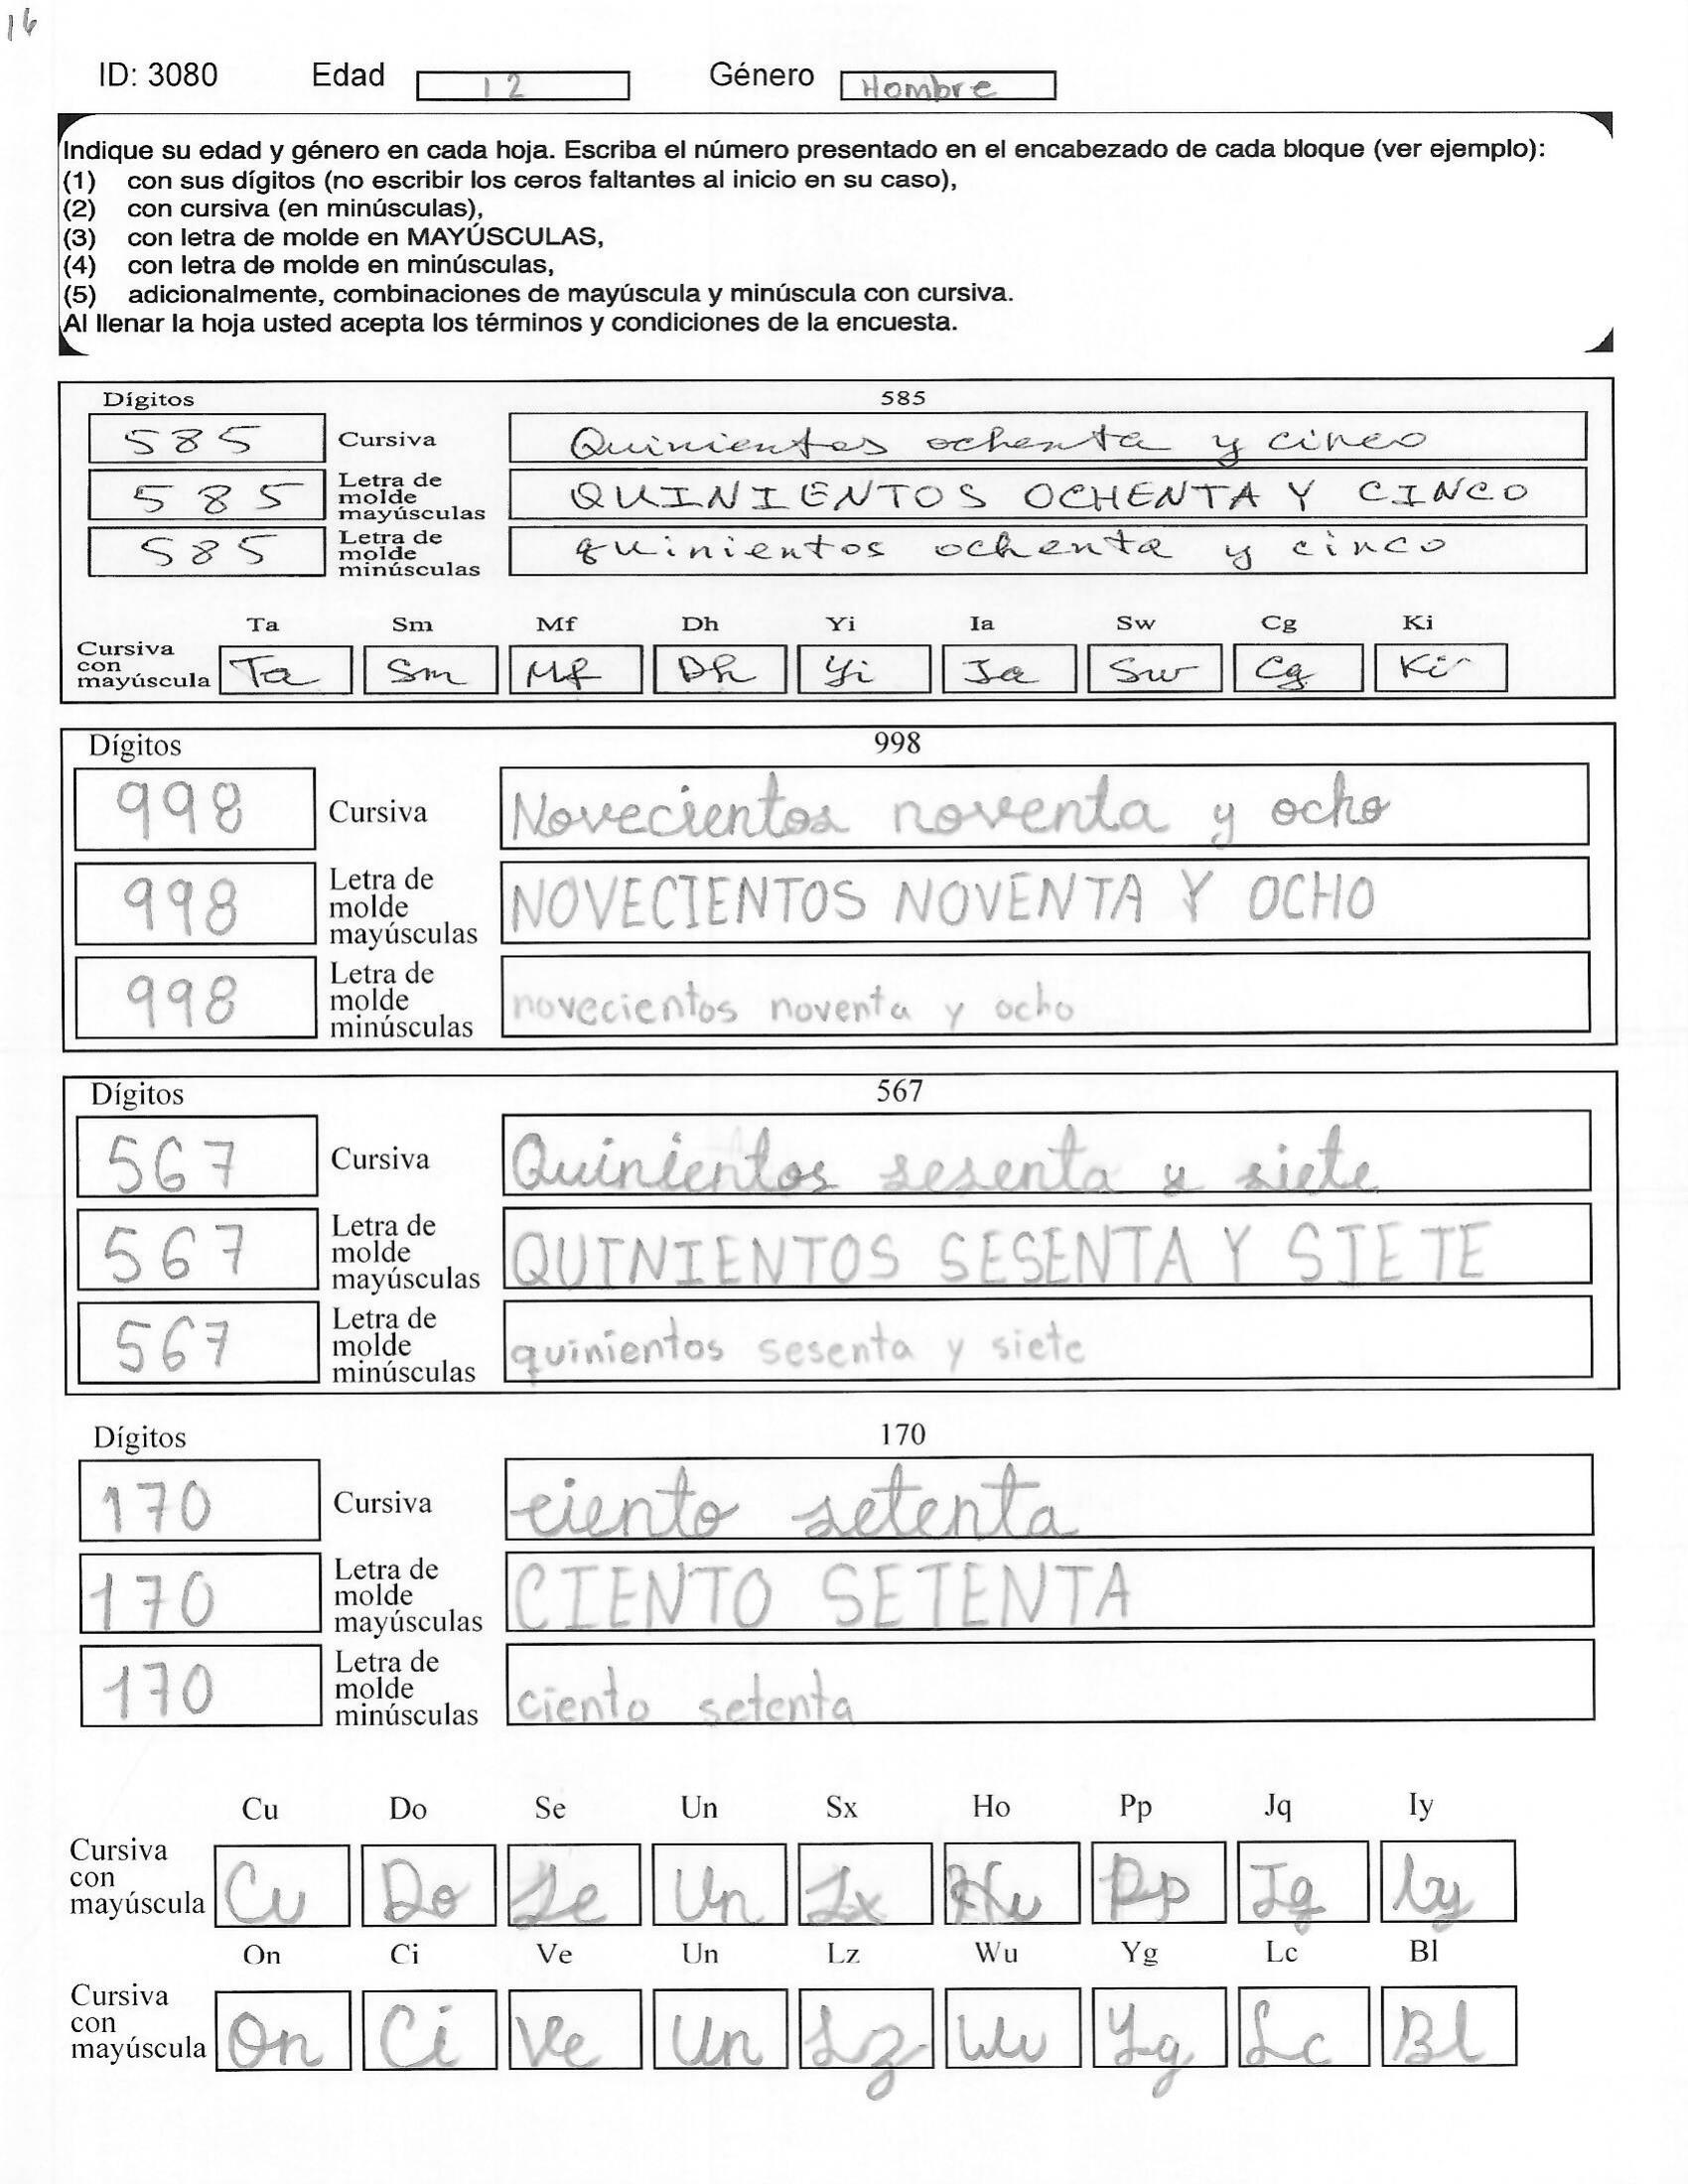 16
ID: 3080 Edad 12 Género Hombre
Indique su edad y género en cada hoja. Escriba el número presentado en el encabezado de cada bloque (ver ejemplo):
(1) con sus dígitos (no escribir los ceros faltantes al inicio en su caso),
(2) con cursiva (en minúsculas),
(3) con letra de molde en MAYÚSCULAS,
(4) con letra de molde en minúsculas,
(5) adicionalmente, combinaciones de mayúscula y minúscula con cursiva.
Al llenar la hoja usted acepta los términos y condiciones de la encuesta.
Dígitos 585
585 Cursiva Quinientos ochenta y cinco
585 Letra de molde mayúsculas QUINIENTOS OCHENTA Y CINCO
585 Letra de molde minúsculas quinientos ochenta y cinco
Ta Sm Mf Dh Yi Ia Sw Cg Ki
Cursiva con mayúscula Ta Sm Mf Dh Yi Ia Sw Cg Ki
Dígitos 998
998 Cursiva Novecientos noventa y ocho
998 Letra de molde mayúsculas NOVECIENTOS NOVENTA Y OCHO
998 Letra de molde minúsculas novecientos noventa y ocho
Dígitos 567
567 Cursiva Quinientos sesenta y siete
567 Letra de molde mayúsculas QUINIENTOS SESENTA Y SIETE
567 Letra de molde minúsculas quinientos sesenta y siete
Dígitos 170
170 Cursiva ciento setenta
170 Letra de molde mayúsculas CIENTO SETENTA
170 Letra de molde minúsculas ciento setenta
Cu Do Se Un Sx Ho Pp Jq Iy
Cursiva con mayúscula Cu Do Se Un Sx Hu Pp Jq Iy
On Ci Ve Un Lz Wu Yg Lc Bl
Cursiva con mayúscula On Ci Ve Un Lz Wu Yg Lc Bl